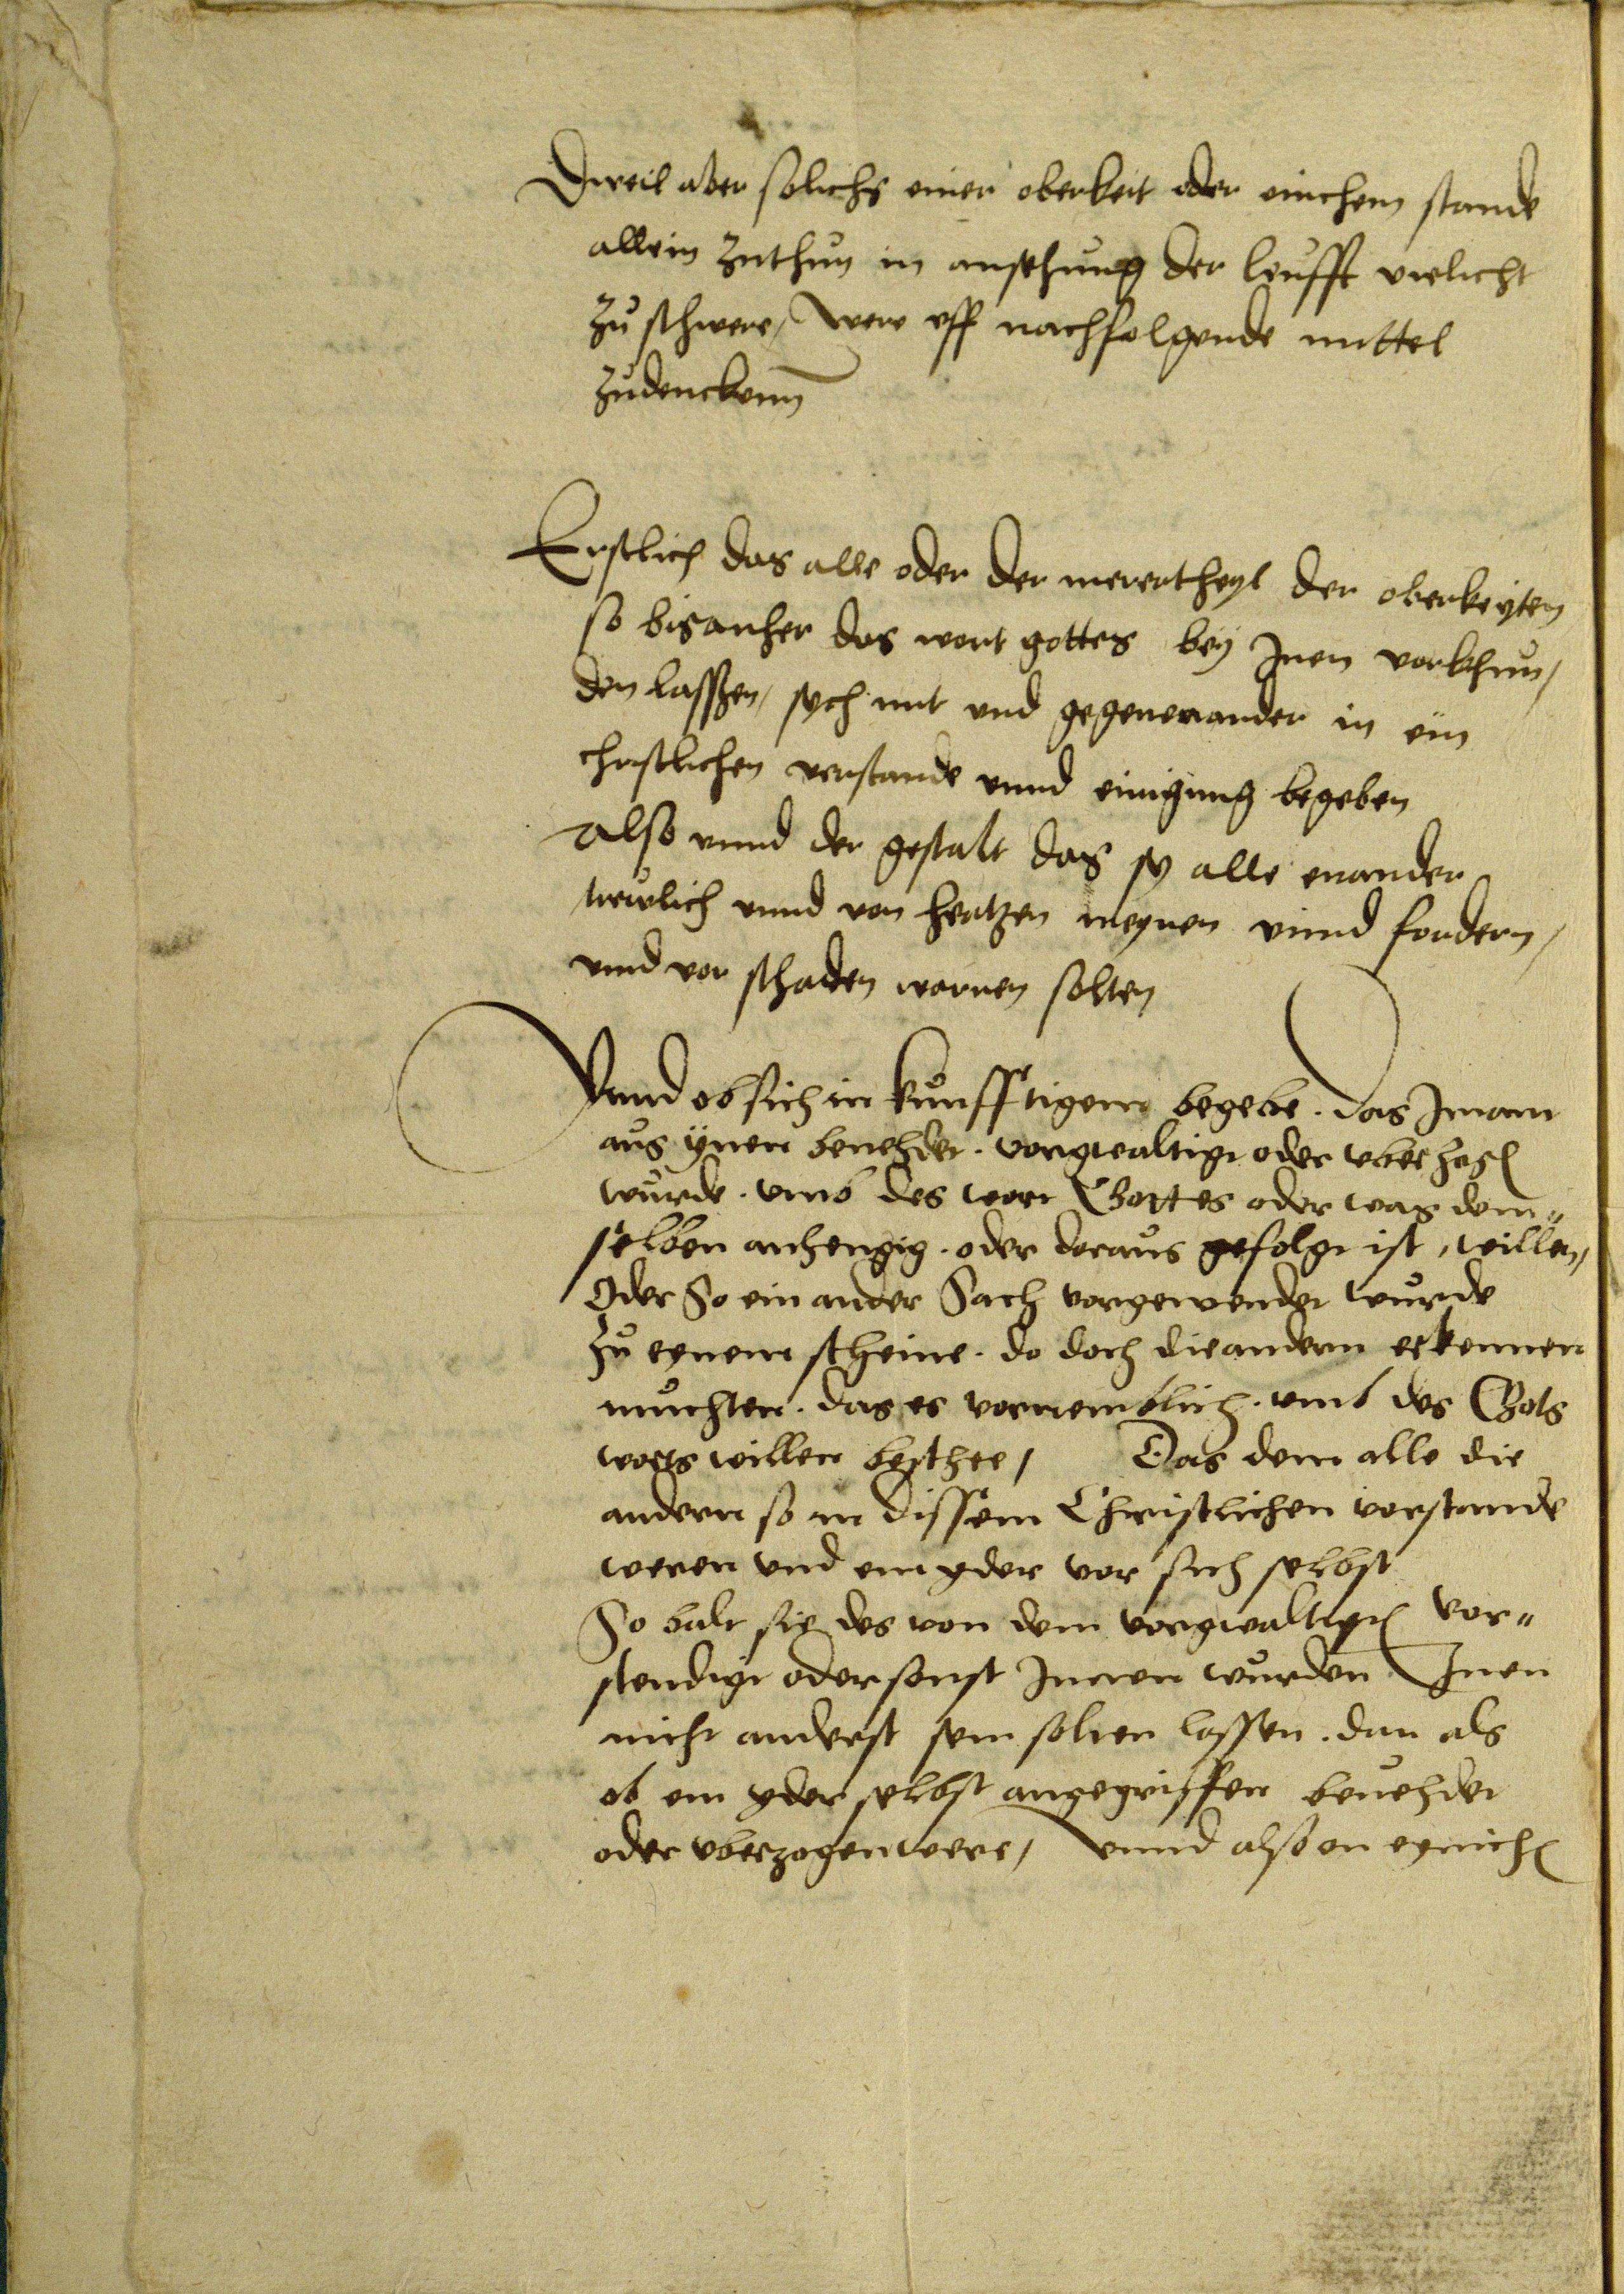 Dweil aber solichs einer oberkeit oder einchem stande
allein zuthun in ansehung der leufft vielicht
zu schwere, were vff nachfolgende mittel
zudenckenn
Erstlich das alle oder der merertheyl der oberkeyten
so bisanher das wort gottes bey Jnen verkhun,
den lasszen, sych mit vnd gegeneinander in ein
christlichen verstande vnnd einigung begeben
also vnnd der gestalt das sy alle einander
trewlich vnnd von hertzen meynen vnnd fordern,
vnnd vor schaden warnen solten
Vnnd ob sich in kunfftigem begebe. das Jmant
aus ynen benehdet. vorgwaltigt oder vberzogen
wurde. vmb des wort Gottes oder was dem„
selben anhengig. oder doraus gefolgt ist, willen,
Oder So ein ander Sach vorgewendet wurde
zu eynem scheine. do doch die andern erkennen
muchten. das es vornemblich. vmb des Gots
worts willen beschee, Das dem alle die
andern so in dissem Christlichen vorstande
weren vnd ein yder vor sich selbst
So balt sie des von dem vorgwaltigten vor„
stendigt oder sonst Jnnen wurden Jnen
nicht anderst sein solten lassen. dan als
ob ein yder selbst angegriffen benehdet
oder vberzogen were, vnnd also on eynichen